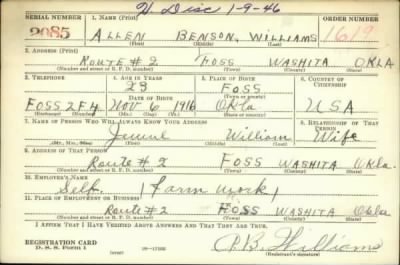 H Disc 1-9-46
SERIAL NUMBER 1. NAME (Print) ORDER NUMBER
2085 ALLEN BENSON, WILLIAMS 1619
(First) (Middle) (Last)
2. ADDRESS (Print)
ROUTE #2 FOSS WASHITA OKLA
(Number and street or R. F. D. number) (Town) (County) (State)
3. TELEPHONE 4. AGE IN YEARS 5. PLACE OF BIRTH 6. COUNTRY OF CITIZENSHIP
23 FOSS
DATE OF BIRTH (Town or county)
FOSS 2F4 NOV 6 1916 Okla USA
(Exchange) (Number) (Mo.) (Day) (Yr.) (State or country)
7. NAME OF PERSON WHO WILL ALWAYS KNOW YOUR ADDRESS 8. RELATIONSHIP OF THAT PERSON
William Wife
(Mr., Mrs., Miss) (First) (Middle) (Last)
9. ADDRESS OF THAT PERSON
Route #2 FOSS WASHITA Okla.
(Number and street or R. F. D. number) (Town) (County) (State)
10. EMPLOYER'S NAME
Self. (Farm work)
11. PLACE OF EMPLOYMENT OR BUSINESS
Route #2 FOSS WASHITA Okla
(Number and street or R. F. D. number) (Town) (County) (State)
I AFFIRM THAT I HAVE VERIFIED ABOVE ANSWERS AND THAT THEY ARE TRUE.
REGISTRATION CARD
D. S. S. Form 1 16—17105 (over) A.B. Williams
(Registrant's signature)